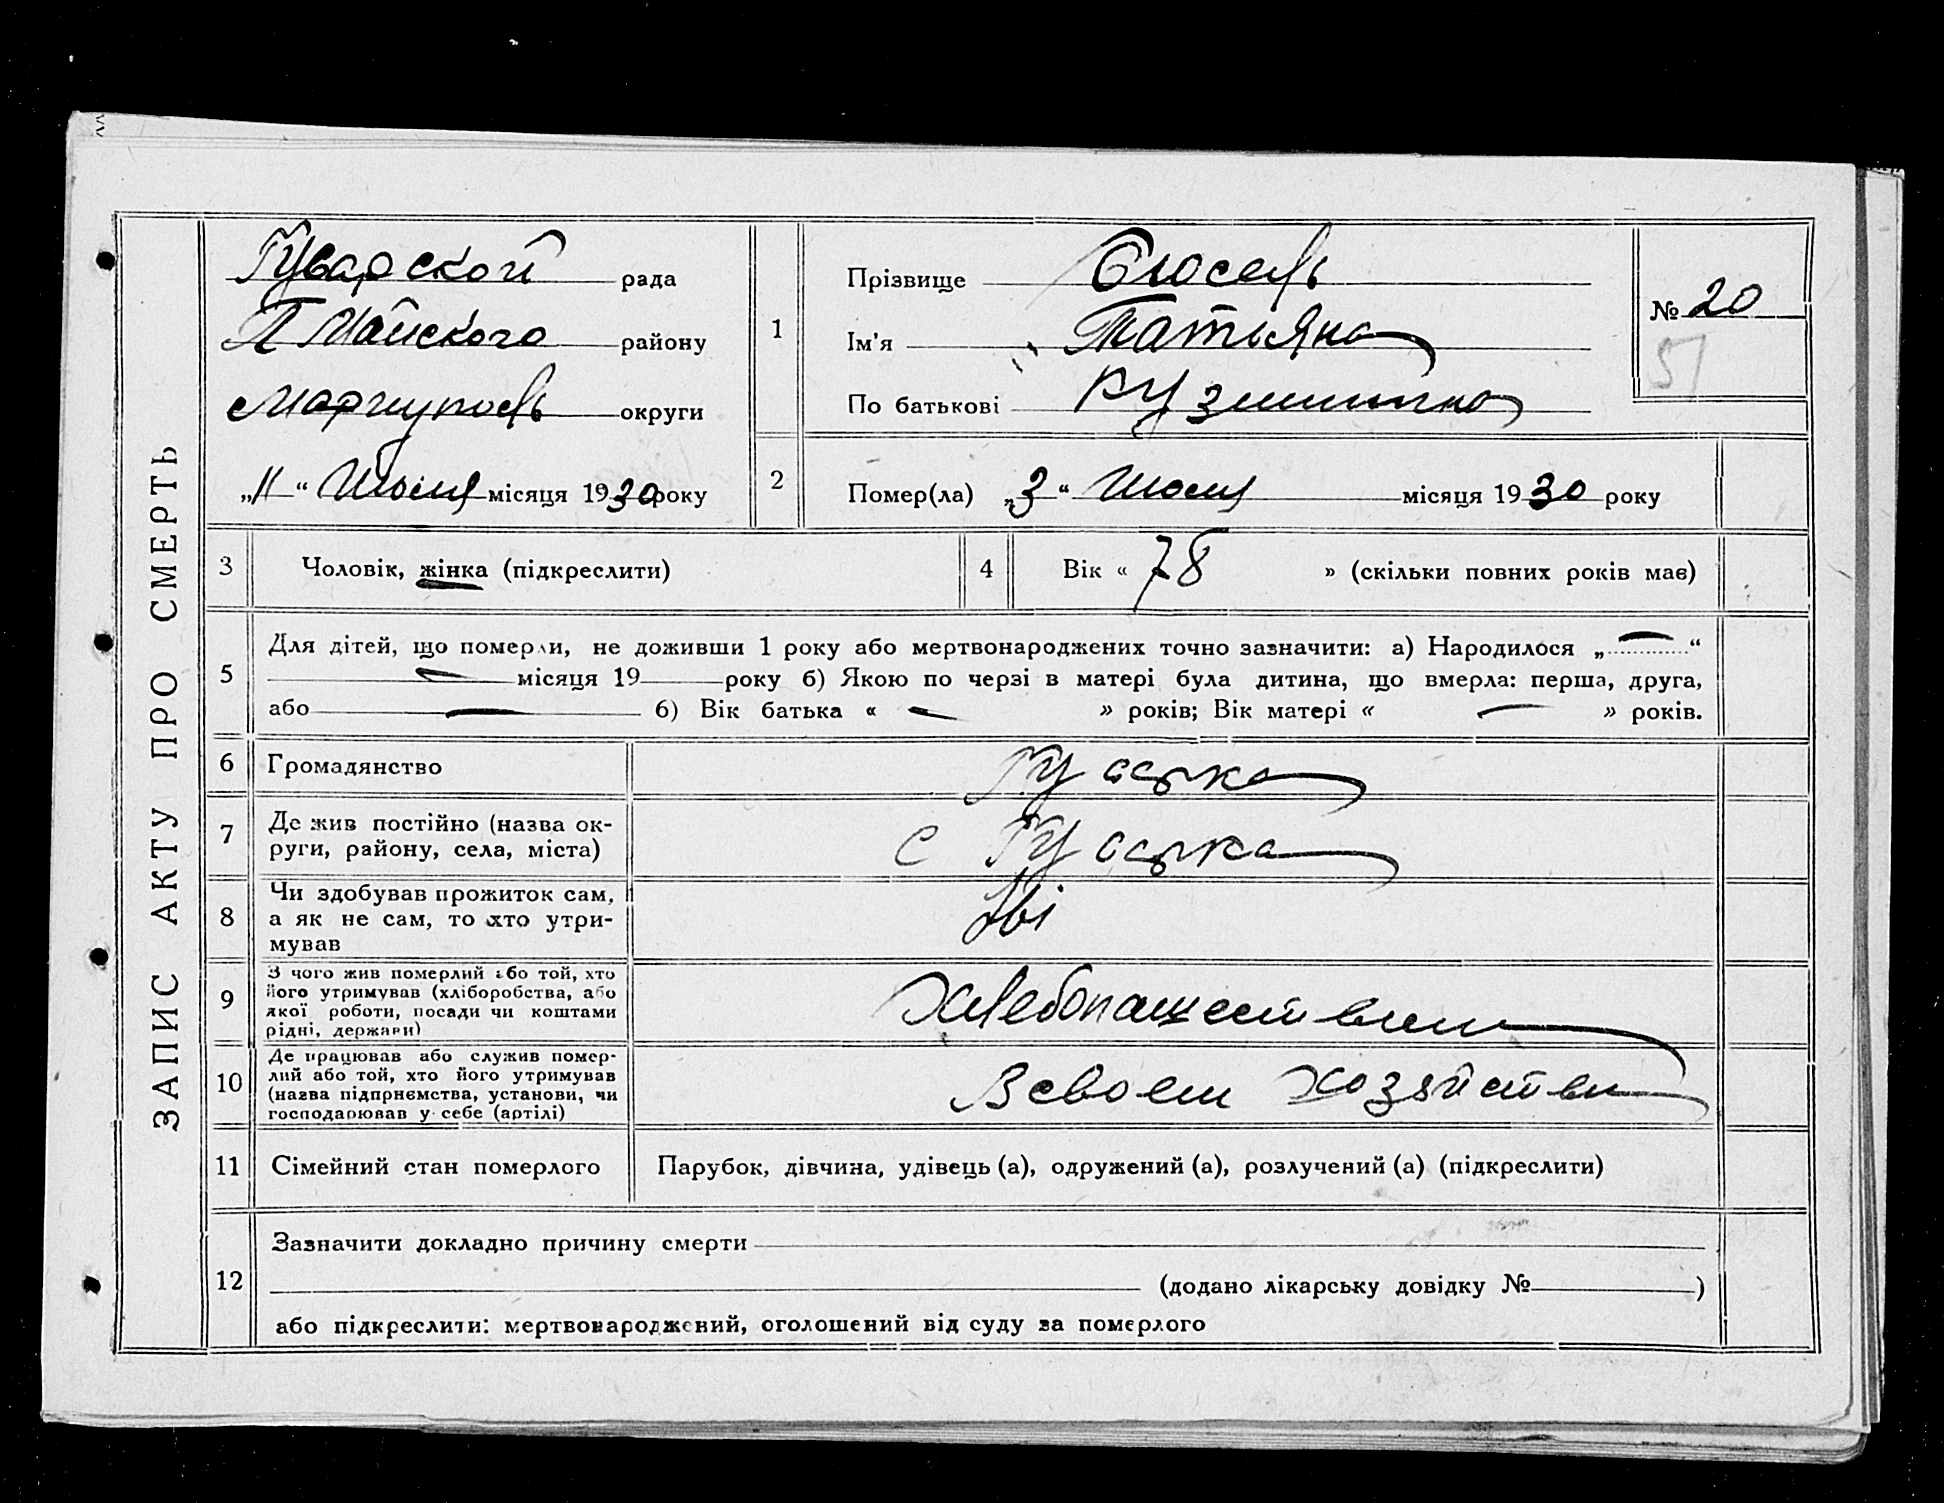 ЗАПИС АКТУ ПРО СМЕРТЬ
рада
П Майского району
Мариуполь округи
„11“ Июля місяця 1930 року
1
Прізвище
Ім'я Татьяна
По батькові
№ 20
51
2
Помер(ла) „3“ Июля місяця 1930 року
3 Чоловік, жінка (підкреслити)
4 Вік « 78 » (скільки повних років мав)
5
Для дітей, що померли, не доживши 1 року або мертвонароджених точно зазначити: а) Народилося „ “
місяця 19 року б) Якою по черзі в матері була дитина, що вмерла: перша, друга,
або б) Вік батька « » років; Вік матері « » років.
6 Громадянство
7 Де жив постійно (назва ок-
руги, району, села, міста) с
8 Чи здобував прожиток сам,
а як не сам, то хто утри-
мував
9 З чого жив померлий або той, хто
його утримував (хліборобства, або
якої роботи, посади чи коштами
рідні, держави)
Хлебопашеством
10 Де працював або служив помер-
лий або той, хто його утримував
(назва підприємства, установи, чи
господарював у себе (артілі)
В своем хозяйстве
11 Сімейний стан померлого Парубок, дівчина, удівець (а), одружений (а), розлучений (а) (підкреслити)
12 Зазначити докладно причину смерти
(додано лікарську довідку № )
або підкреслити: мертвонароджений, оголошений від суду за померлого